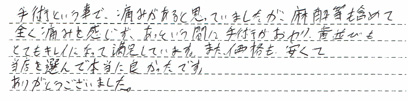 手術という事で、痛みがあると思っていましたが、麻酔等も含めて
全く痛みを感じず、あっという間に手術がおわり、歯並びも
とてもキレイになって満足しています。また価格も安くて
当店を選んで本当に良かったです。
ありがとうございました。